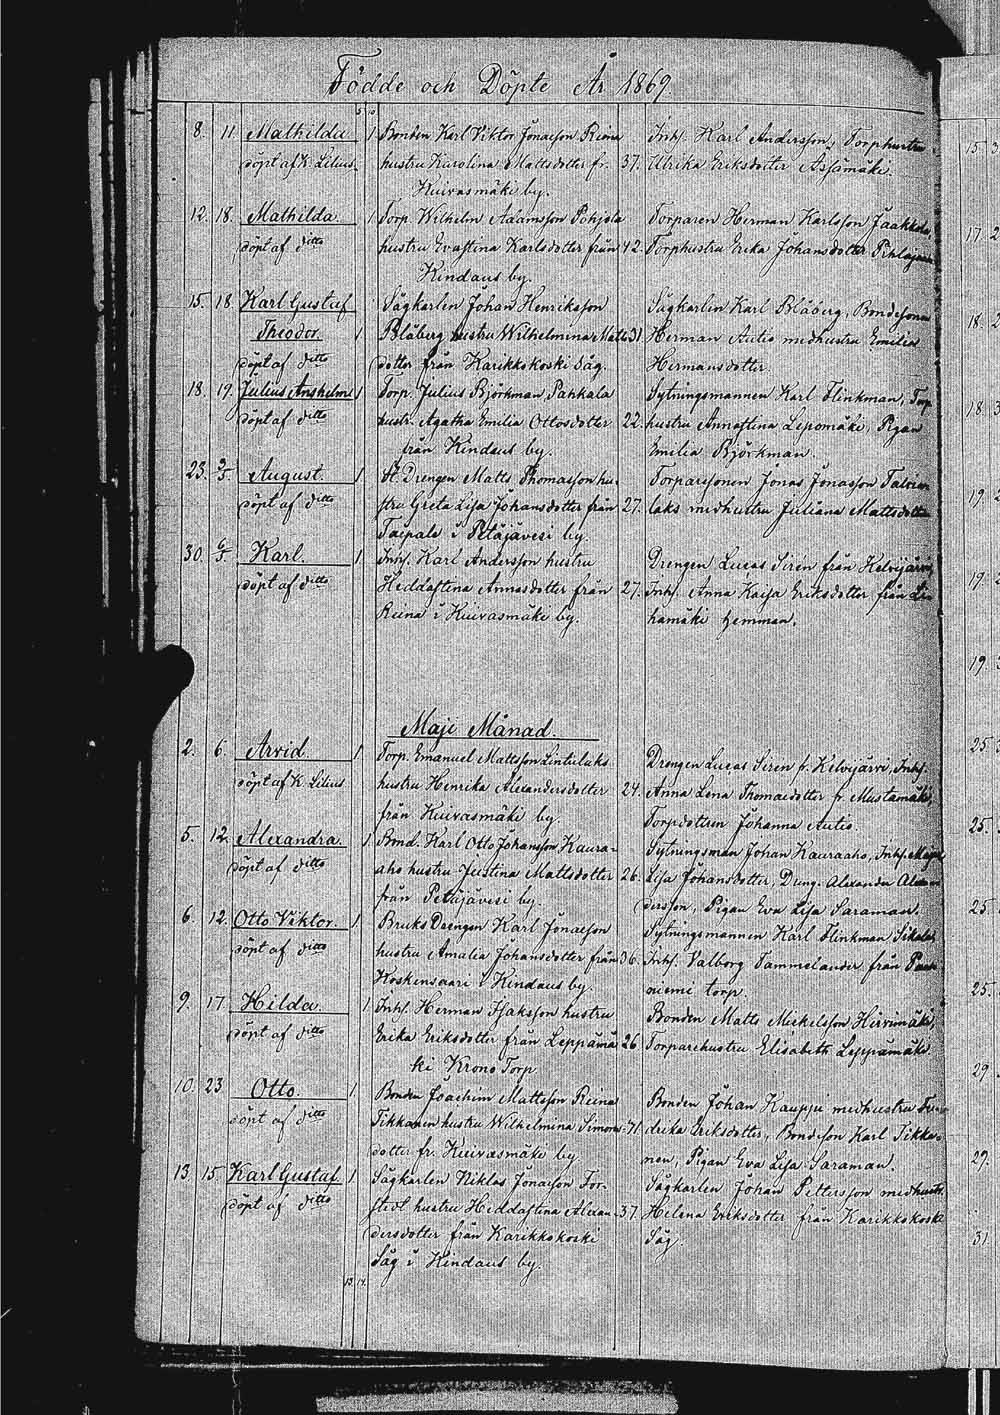 Födde och Döpte År 1869
8. 11. Mathilda 1 Bonden Karl Viktor Jonasson Reina Inhs. Karl Andersson, Torphustru
döpt af K. Lilius. hustru Karolina Mattsdotter fr. 37. Ulrika Eriksdotter Assamäki.
Kuivasmäki by.
12. 18. Mathilda. 1 Torp. Wilhelm Adamsson Pohjola Torparen Herman Karlsson Jaakkola,
döpt af ditto hustru Evastina Karlsdotter från 42. Torphustru Erika Johansdotter
Kindaus by.
15. 18 Karl Gustaf Sågkarlen Johan Henriksson Sågkarlen Karl Blåberg, Bondesonen
Theodor. 1 Blåberg hustru Wilhelmina Matts 31. Herman Autio medhustru Emilia
döpt af ditto dotter från Karikkokoski Såg. Hermansdotter.
18. 19. Julius Anshelm 1 Torp. Julius Björkman, Pahkala Sytningsmannen Karl Flinkman, Torp
döpt af ditto hustr. Agatha Emilia Ottosdotter 22. hustru Annastina Lepomäki, Pigan
från Kindaus by. Emilia Björkman.
23. 2/5 August. 1. St. Drengen Matts Thomasson hu- Torparsonen Jonas Jonasson
döpt af ditto stru Greta Lisa Johansdotter från 27. laks medhustru Juliana Mattsdotter
Taipale i Petäjävesi by.
30. 6/5 Karl. 1. Inhs. Karl Andersson hustru Drengen Lucas Sirén från Kelvijärvi,
döpt af ditto Heddastina Annasdotter från 27. Inhs. Anna Kaisa Eriksdotter från
Reina i Kuivasmäki by. hamäki hemman.
Maji Månad.
2. 6. Arvid 1 Torp. Emanuel Mattsson Lintulaks Drengen Lucas Siren fr. Kelvijärvi, Inhs.
döpt af K. Lilius hustru Henrika Alexandersdotter 24. Anna Lena Thomasdotter fr. Mustamäki,
från Kuivasmäki by Torpdottren Johanna Autio.
5. 12. Alexandra. 1 Bond. Karl Otto Johansson Kaura= Sytningsman Johan Kauraaho, Inhs. Maja
döpt af ditto aho hustru Justina Mattsdotter 26. Lisa Johansdotter, Dreng. Alexander Alexan
från Petäjävesi by. dersson, Pigan Eva Lisa Saraman.
6. 12. Otto Viktor. 1 Bruks Drengen Karl Jonasson Sytningsmannen Karl Flinkman
döpt af ditto hustru Amalia Johansdotter från 36. Inhs. Valborg Tammelander från
Koskensaari i Kindaus by. niemi torp.
9. 17. Hilda. 1 Inhs. Herman Isaksson hustru Bonden Matts Mickelsson Hirvimäki,
döpt af ditto Erika Eriksdotter från Leppämä 26 Torparehustru Elisabeth Leppämäki.
ki Krono Torp
10. 23 Otto. 1. Bonden Joachim Mattsson Reina Bonden Johan Kauppi medhustru Fre
döpt af ditto Tikkanen hustru Wilhelmina Simons 41. drika Eriksdotter, Bondeson Karl Tikka
dotter fr. Kuivasmäki by nen, Pigan Eva Lisa Saraman.
13. 15. Karl Gustaf 1 Sågkarlen Niklas Jonasson For- Sågkarlen Johan Pettersson medhustr.
döpt af ditto stedt hustru Heddastina Alexan 37. Helena Eriksdotter från Karikkokoski
dersdotter från Karikkokoski Såg.
Såg i Kindaus by.
13. 14.